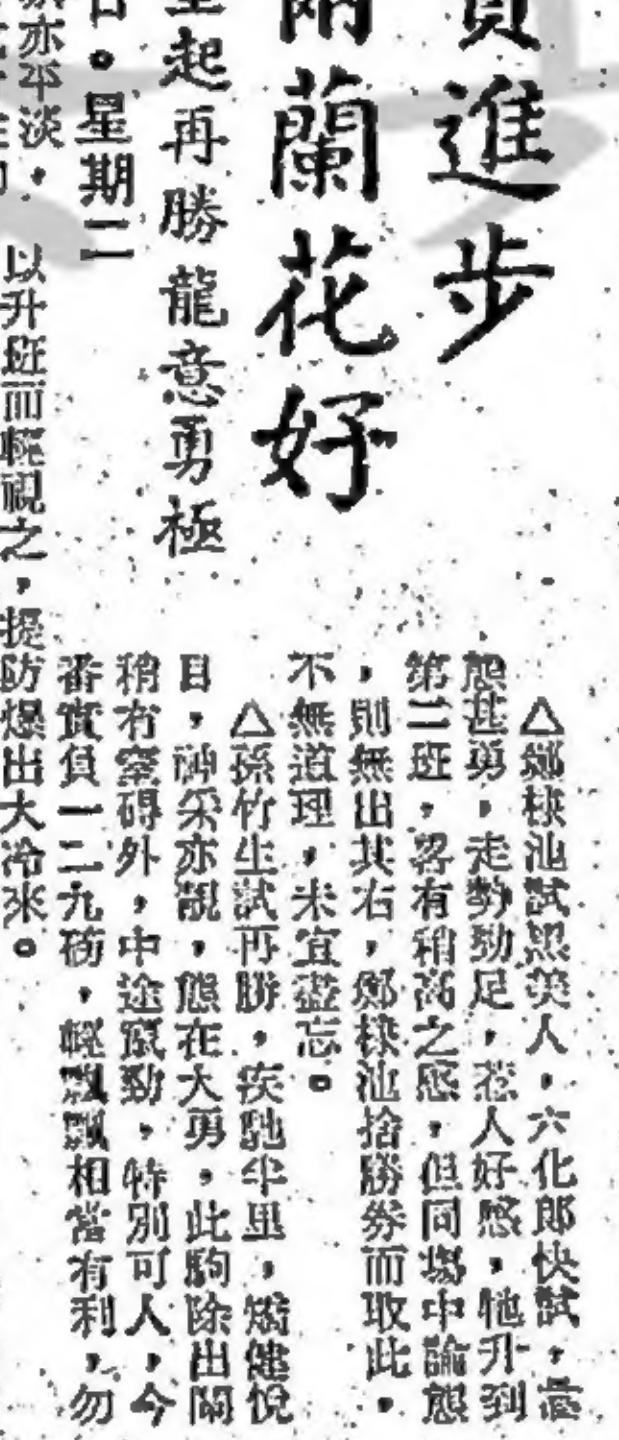 進步
蘭花好
起再勝龍意勇極
。星期二
亦平淡,
△鄭棣池試黑美人,六化郎快試,意
態甚勇,走勢勁足,惹人好感,牠升到
第二班,畧有稍高之感,但同場中論態
,則無出其右,鄭棣池捨勝券而取此,
不無道理,未宜盡忘。
△孫竹生試再勝,疾馳半里,矯健悅
目,神采亦靚,態在大勇,此駒除出閘
稍有窒碍外,中途氣勁,特別可人,今
番實負一二九磅,輕飄飄相當有利,勿
以升班而輕視之,提防爆出大冷來。